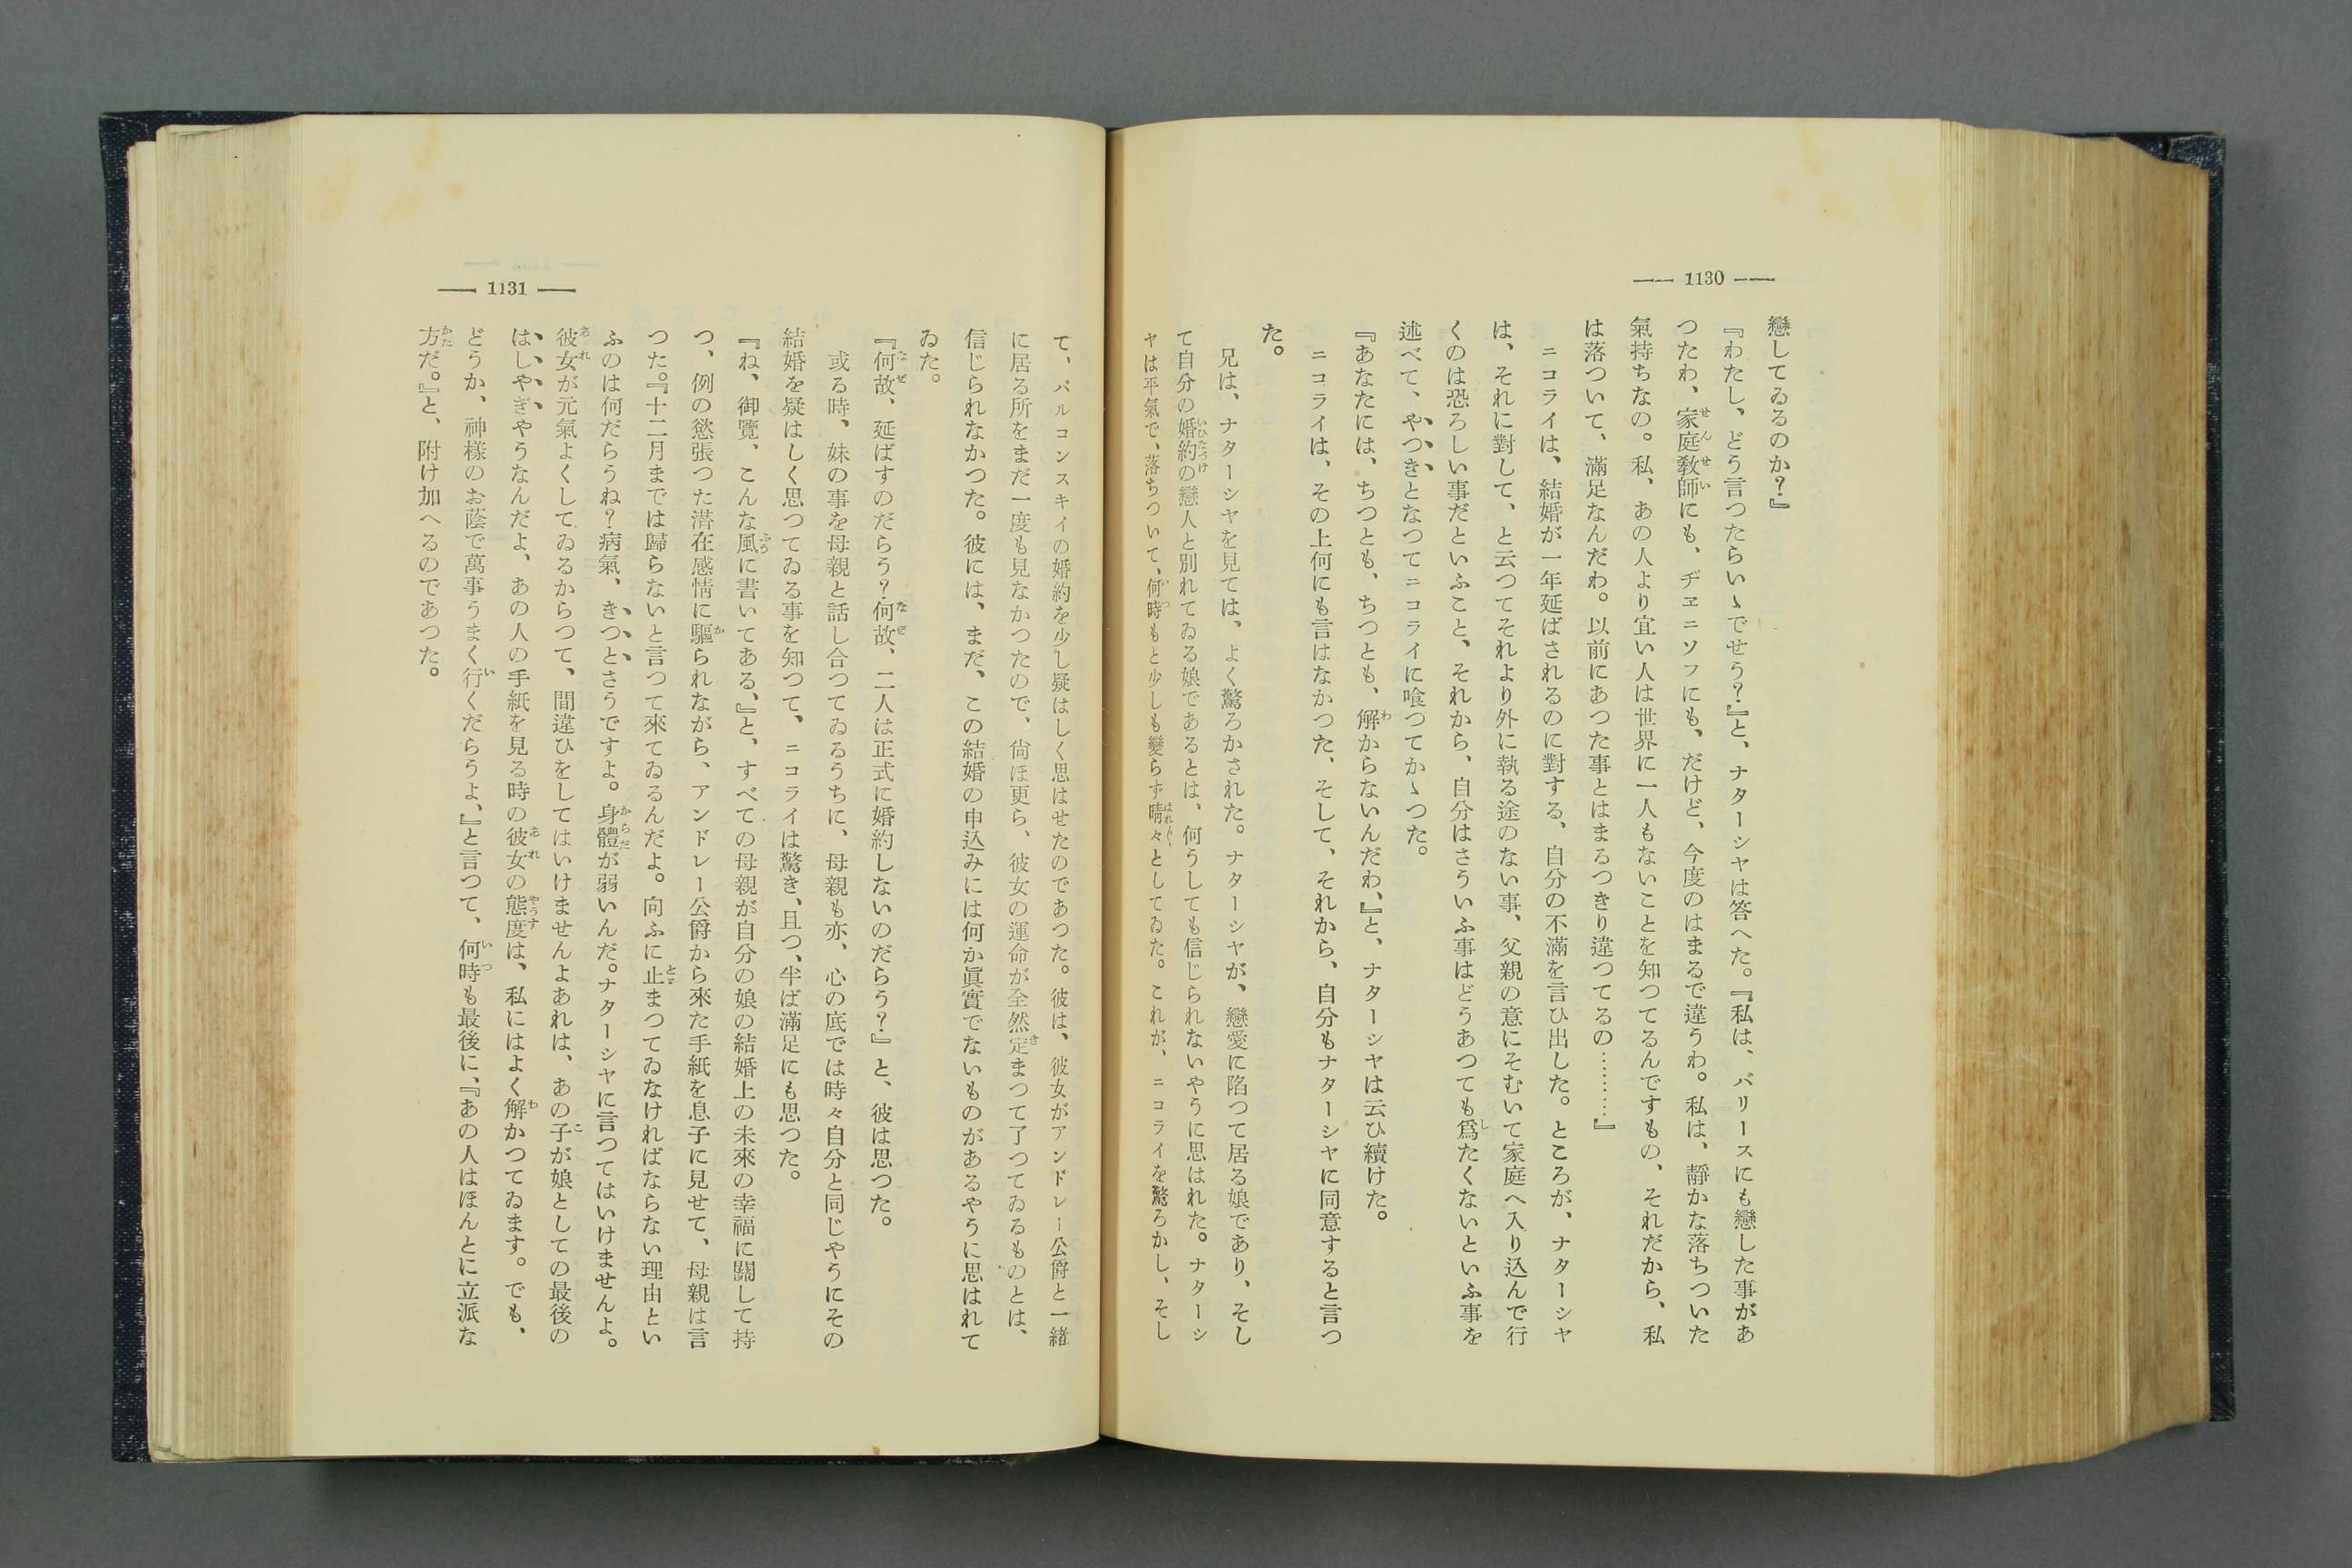 — 1130 —
戀してゐるのか？』
『わたし、どう言つたらいゝでせう？』と、ナターシヤは答へた。『私は、バリースにも戀した事があ
つたわ、家庭教師にも、ヂエニソフにも、だけど、今度のはまるで違うわ。私は、靜かな落ちついた
氣持ちなの。私、あの人より宜い人は世界に一人もないことを知つてるんですもの、それだから、私
は落ついて、滿足なんだわ。以前にあつた事とはまるつきり違つてるの………』
ニコライは、結婚が一年延ばされるのに對する、自分の不滿を言ひ出した。ところが、ナターシヤ
は、それに對して、と云つてそれより外に執る途のない事、父親の意にそむいて家庭へ入り込んで行
くのは恐ろしい事だといふこと、それから、自分はさういふ事はどうあつても爲たくないといふ事を
述べて、やつきとなつてニコライに喰つてかゝつた。
『あなたには、ちつとも、ちつとも、解からないんだわ、』と、ナターシヤは云ひ續けた。
ニコライは、その上何にも言はなかつた、そして、それから、自分もナターシヤに同意すると言つ
た。
兄は、ナターシヤを見ては、よく驚ろかされた。ナターシヤが、戀愛に陷つて居る娘であり、そし
て自分の婚約の戀人と別れてゐる娘であるとは、何うしても信じられないやうに思はれた。ナターシ
ヤは平氣で、落ちついて、何時もと少しも變らず晴々としてゐた。これが、ニコライを驚ろかし、そし
— 1131 —
て、バルコンスキイの婚約を少し疑はしく思はせたのであつた。彼は、彼女がアンドレー公爵と一緒
に居る所をまだ一度も見なかつたので、尙ほ更ら、彼女の運命が全然定まつて了つてゐるものとは、
信じられなかつた。彼には、まだ、この結婚の申込みには何か眞實でないものがあるやうに思はれて
ゐた。
『何故、延ばすのだらう？何故、二人は正式に婚約しないのだらう？』と、彼は思つた。
或る時、妹の事を母親と話し合つてゐるうちに、母親も亦、心の底では時々自分と同じやうにその
結婚を疑はしく思つてゐる事を知つて、ニコライは驚き、且つ、半ば滿足にも思つた。
『ね、御覽、こんな風に書いてある、』と、すべての母親が自分の娘の結婚上の未來の幸福に關して持
つ、例の慾張つた潛在感情に驅られながら、アンドレー公爵から來た手紙を息子に見せて、母親は言
つた。『十二月までは歸らないと言つて來てゐるんだよ。向ふに止まつてゐなければならない理由とい
ふのは何だらうね？病氣、きつとさうですよ。身體が弱いんだ。ナターシヤに言つてはいけませんよ。
彼女が元氣よくしてゐるからつて、間違ひをしてはいけませんよあれは、あの子が娘としての最後の
はしやぎやうなんだよ、あの人の手紙を見る時の彼女の態度は、私にはよく解かつてゐます。でも、
どうか、神樣のお蔭で萬事うまく行くだらうよ、』と言つて、何時も最後に、『あの人はほんとに立派な
方だ。』と、附け加へるのであつた。